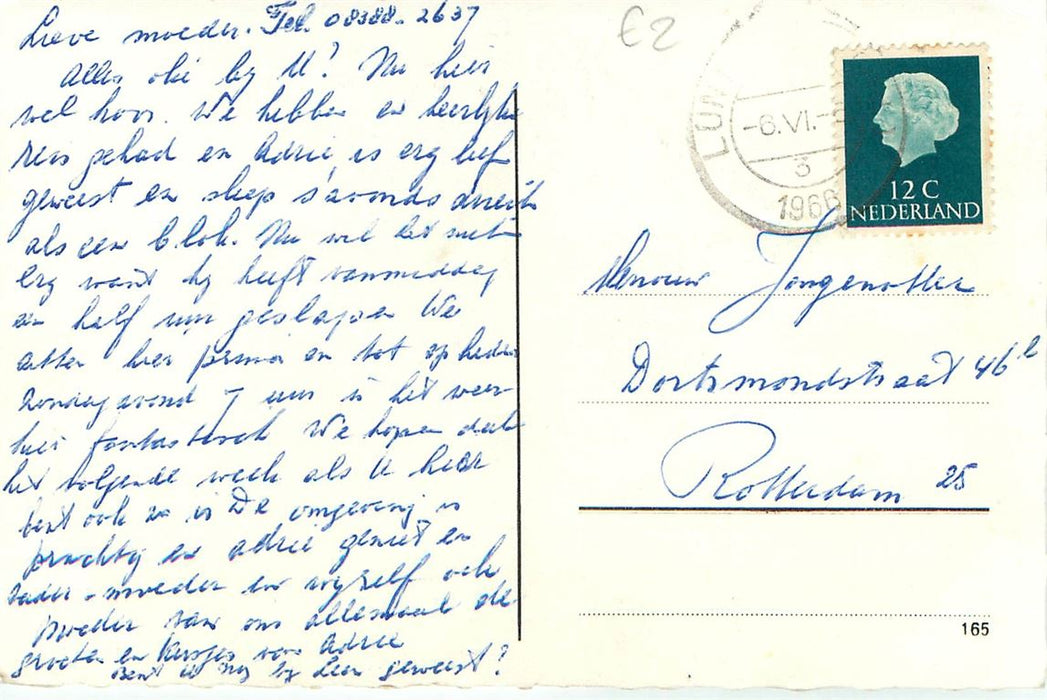 Lieve moeder. Tel. 08388-2637
Alles oké by U? Nu hier
wel hoor. We hebben en heerlyke
reis gehad en Adrie is erg lief
geweest en sliep s'avonds direct
als een blok. Nu wel iets
erg want hy heeft vanmiddag
en half uur geslapen We
zitten hier prima en tot op heden
zondagavond 7 uur is het weer
hier fantastisch We hopen dat
het volgende week als U hier
bent ook zo is De omgeving is
prachtig en Adrie geniet en
vader - moeder en myself ook
Moeder van ons allemaal de
groeten en kusjes van Adrie
Bent U nog by Leen geweest?
€2
LUN
-6.VI.-
3
1966
12 C
NEDERLAND
Mevrouw Jongenotter
Dortsmondstraat 46b
Rotterdam 25
165